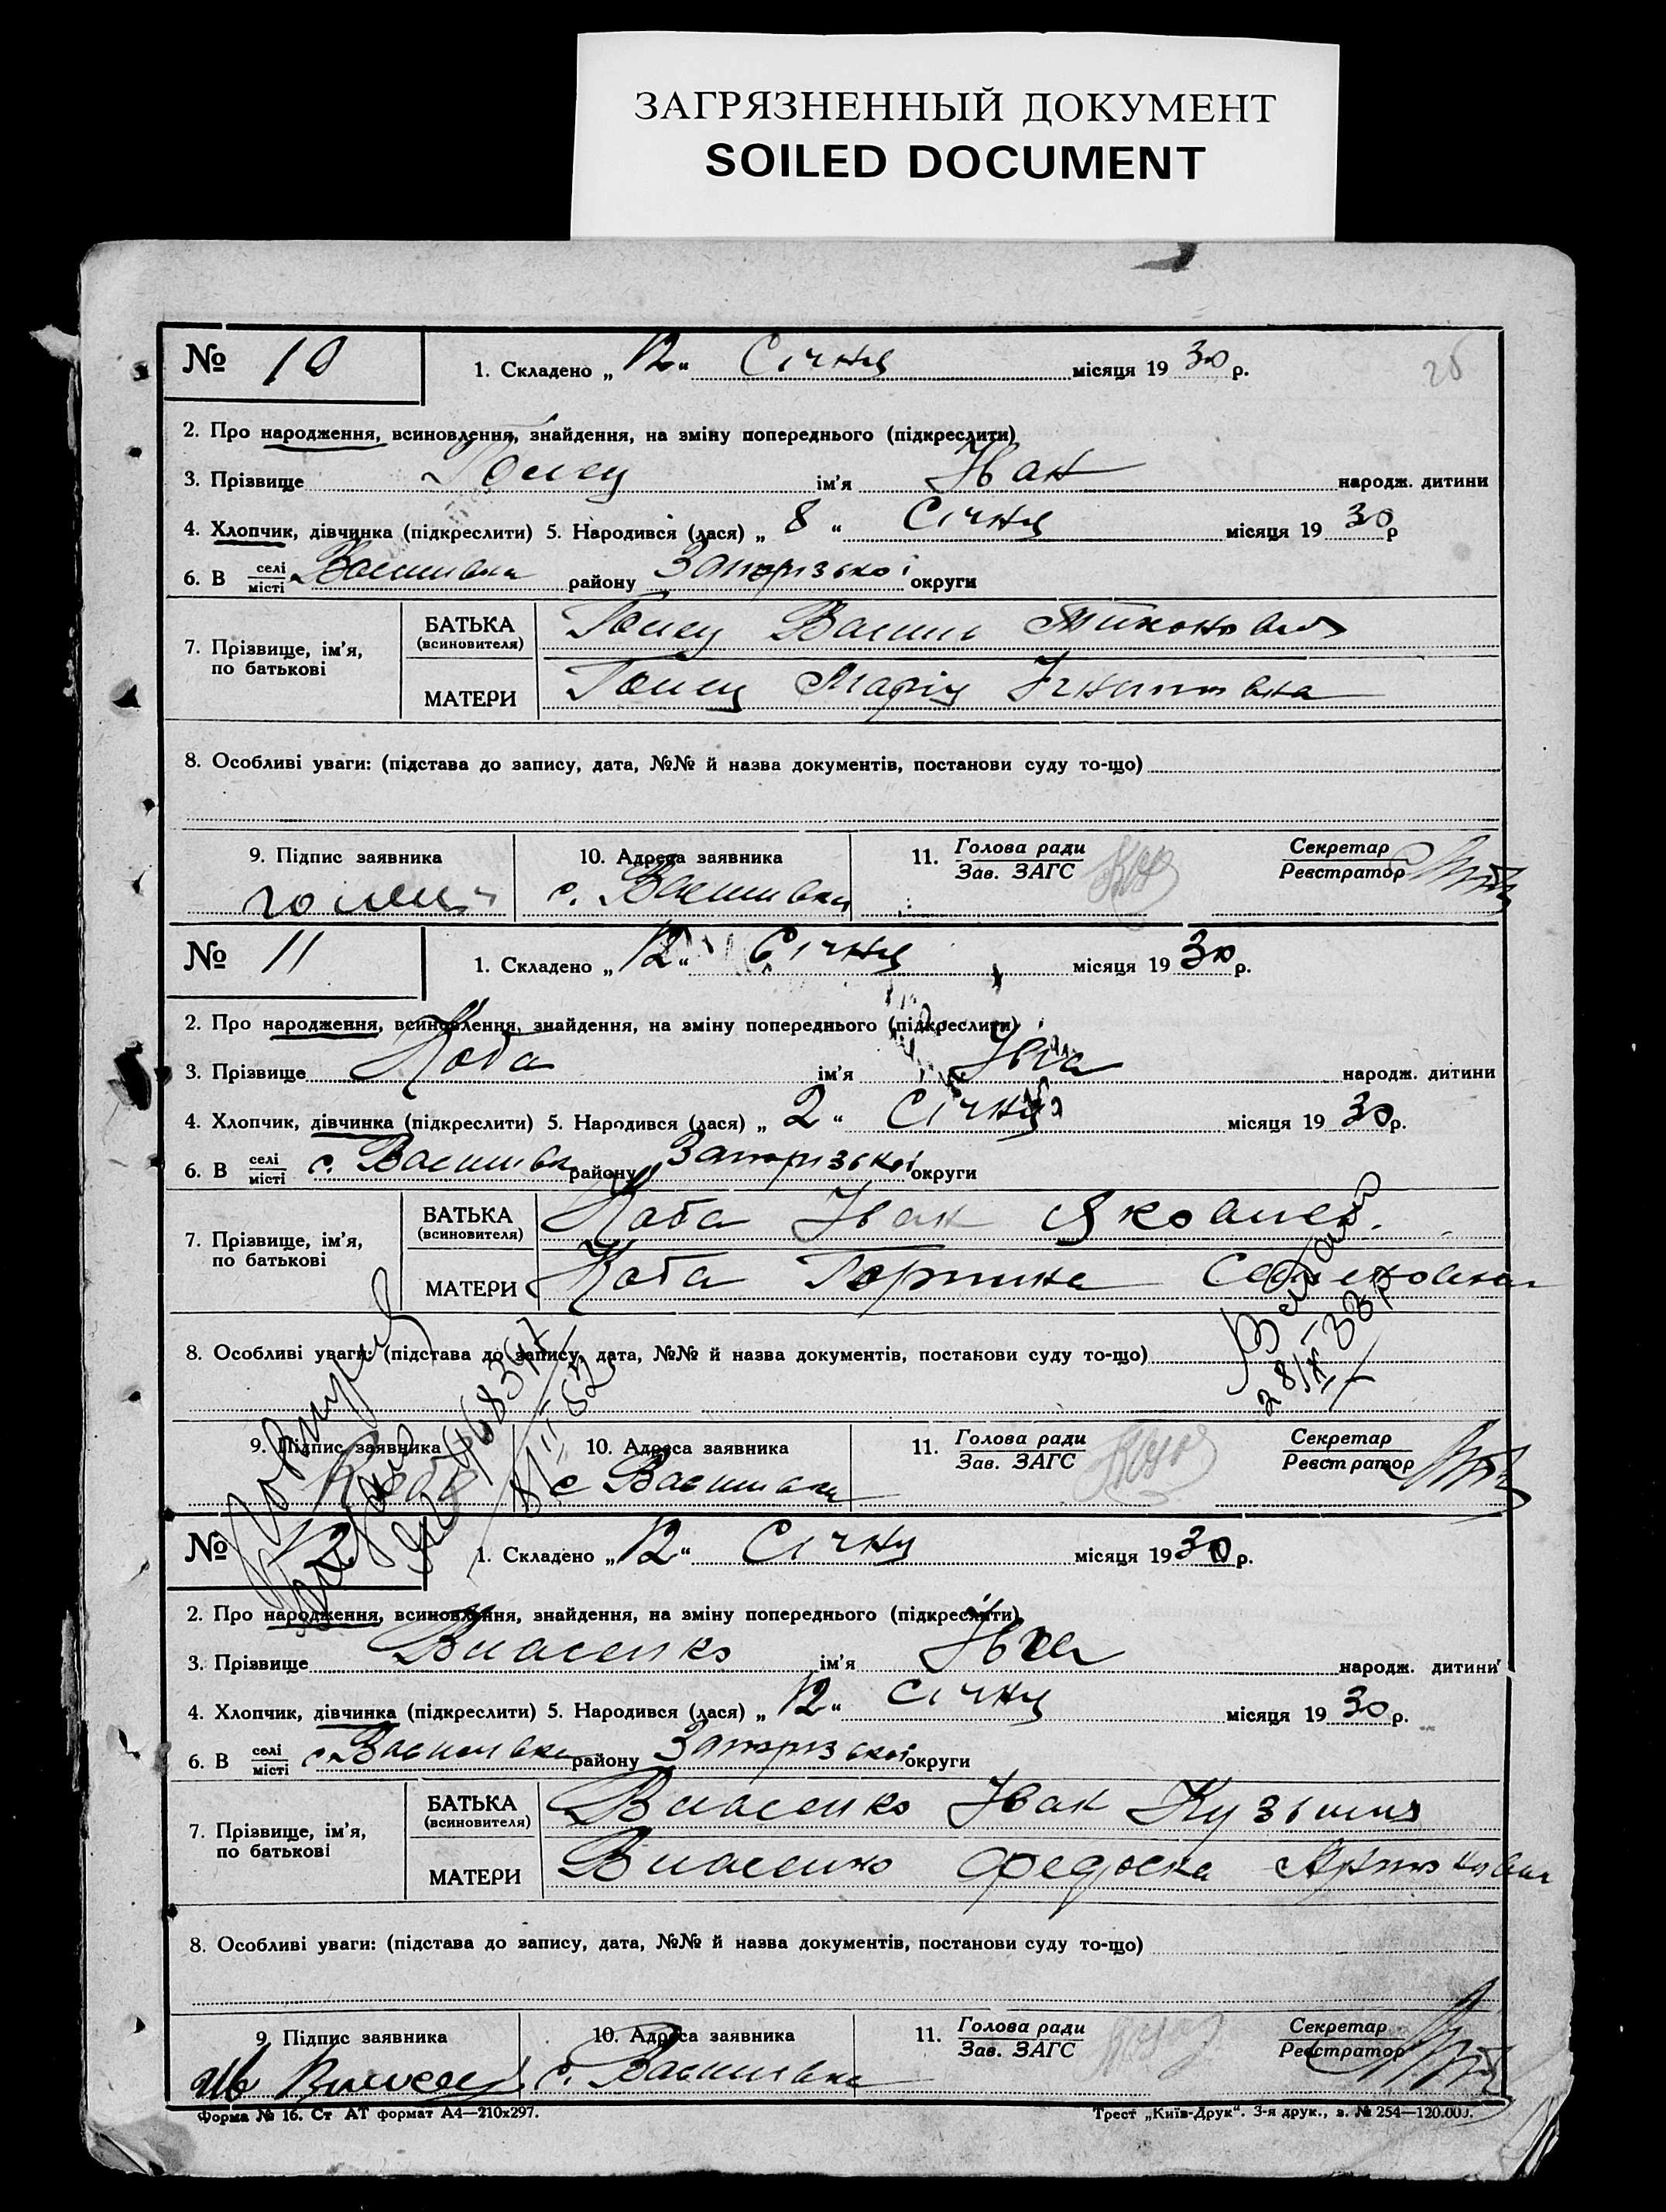 ЗАГРЯЗНЕННЫЙ ДОКУМЕНТ
SOILED DOCUMENT
№ 10 1. Складено „12“ Січня місяця 1930 р.
2. Про народження, всиновлення, знайдення, на зміну попереднього (підкреслити)
3. Прізвище ім'я Іван народж. дитини
4. Хлопчик, дівчинка (підкреслити) 5. Народився (лася) „8“ Січня місяця 1930 р
6. В селі місті Василівка району Запорізької округи
7. Прізвище, ім'я, по батькові
БАТЬКА (всиновителя) Василь Тихонович
МАТЕРИ Марія Ігнатівна
8. Особливі уваги: (підстава до запису, дата, №№ й назва документів, постанови суду то-що)
9. Підпис заявника 10. Адреса заявника 11. Голова ради Зав. ЗАГС Секретар Реєстратор
с. Василівка
№ 11 1. Складено „12“ Січня місяця 1930 р.
2. Про народження, всиновлення, знайдення, на зміну попереднього (підкреслити)
3. Прізвище Коба ім'я Івга народж. дитини
4. Хлопчик, дівчинка (підкреслити) 5. Народився (лася) „2“ Січня місяця 1930 р.
6. В селі місті с. Василівка району Запорізької округи
7. Прізвище, ім'я, по батькові
БАТЬКА (всиновителя) Коба Іван Якович.
МАТЕРИ Коба Горпина Семеновна
8. Особливі уваги: (підстава до запису, дата, №№ й назва документів, постанови суду то-що)
9. Підпис заявника 10. Адреса заявника 11. Голова ради Зав. ЗАГС Секретар Реєстратор
Коба с Василівка
№ 12 1. Складено „12“ Січня місяця 1930 р.
2. Про народження, всиновлення, знайдення, на зміну попереднього (підкреслити)
3. Прізвище Власенко ім'я Івга народж. дитини
4. Хлопчик, дівчинка (підкреслити) 5. Народився (лася) „12“ Січня місяця 1930 р.
6. В селі місті с. Василівка району Запорізької округи
7. Прізвище, ім'я, по батькові
БАТЬКА (всиновителя) Власенко Іван Кузьмич
МАТЕРИ Власенко Федоска
8. Особливі уваги: (підстава до запису, дата, №№ й назва документів, постанови суду то-що)
9. Підпис заявника 10. Адреса заявника 11. Голова ради Зав. ЗАГС Секретар Реєстратор
с. Василівка
Форма № 16. Ст АТ формат А4—210х297. Трест „Київ-Друк“. 3-я друк., з. № 254—120.000.